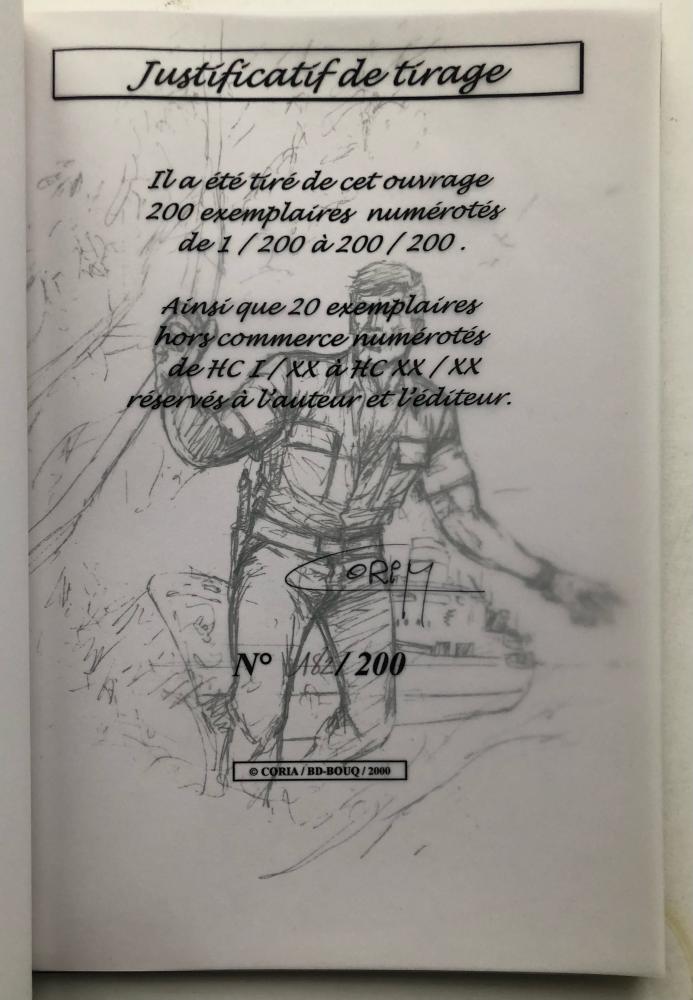 Justificatif de tirage
Il a été tiré de cet ouvrage
200 exemplaires numérotés
de 1 / 200 à 200 / 200 .
Ainsi que 20 exemplaires
hors commerce numérotés
de HC I / XX à HC XX / XX
réservés à l'auteur et l'éditeur.
N° 182 / 200
© CORIA / BD-BOUQ / 2000